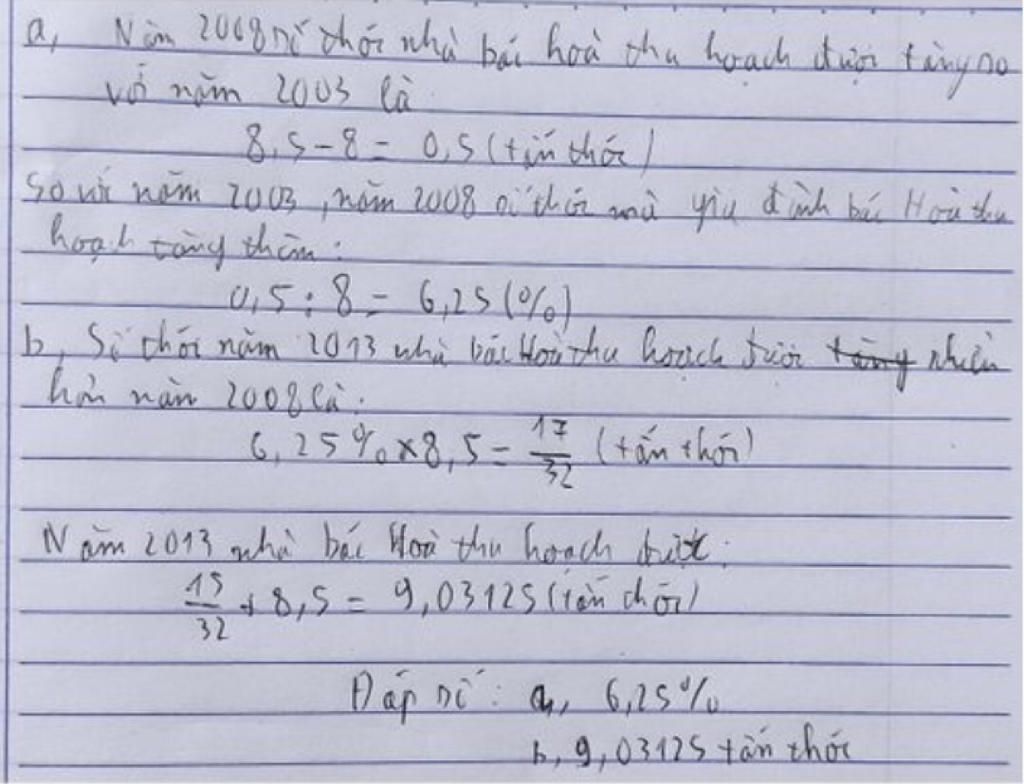 a, Năm 2008 số thóc nhà bác hoà thu hoạch được tăng so
với năm 2003 là
8,5 - 8 = 0,5 (tấn thóc)
So với năm 2003, năm 2008 số thóc mà gia đình bác Hoà thu
hoạch tăng thêm:
0,5 : 8 = 6,25 (%)
b, Số thóc năm 2013 nhà bác Hoà thu hoạch được tăng nhiều
hơn năm 2008 là:
6,25% × 8,5 = 17/32 (tấn thóc)
Năm 2013 nhà bác Hoà thu hoạch được:
15/32 + 8,5 = 9,03125 (tấn thóc)
Đáp số: a, 6,25%
b, 9,03125 tấn thóc